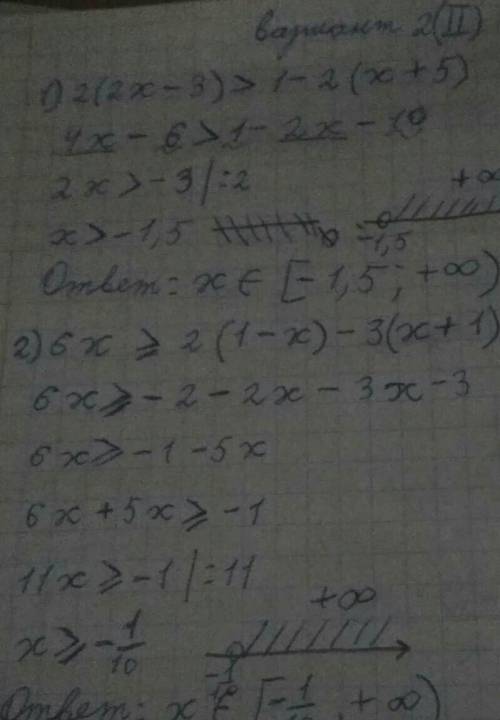 вариант 2(II)
1) 2(2x - 3) > 1 - 2(x + 5)
4x - 6 > 1 - 2x - 10
2x > -3 | :2
+∞
x > -1,5
-1,5
Ответ: x ∈ [-1,5; +∞)
2) 6x ⩾ 2(1-x) - 3(x+1)
6x ⩾ - 2 - 2x - 3x - 3
6x ⩾ -1 - 5x
6x + 5x ⩾ -1
11x ⩾ -1 | :11
+∞
x ⩾ -1/10
Ответ: x ∈ [-1/10, +∞)